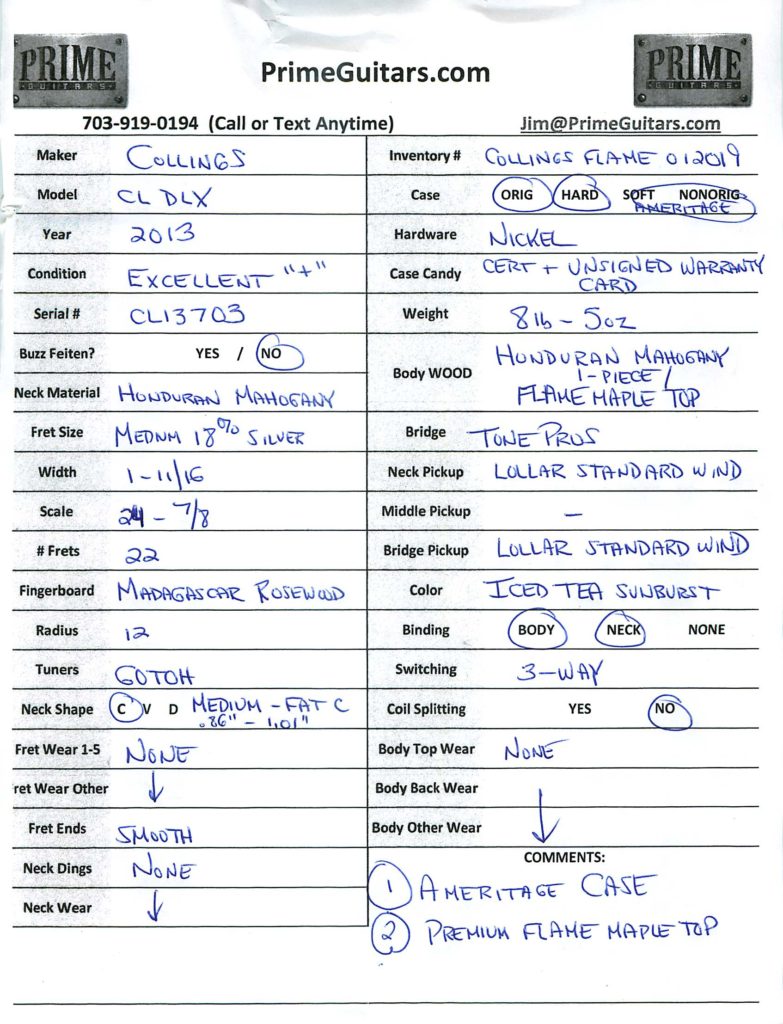 PRIME
GUITARS
PrimeGuitars.com
PRIME
GUITARS
703-919-0194 (Call or Text Anytime)
Jim@PrimeGuitars.com
Maker COLLINGS
Model CL DLX
Year 2013
Condition EXCELLENT "+"
Serial # CL13703
Buzz Feiten? YES / NO
Neck Material HONDURAN MAHOGANY
Fret Size MEDIUM 18% SILVER
Width 1-11/16
Scale 24-7/8
# Frets 22
Fingerboard MADAGASCAR ROSEWOOD
Radius 12
Tuners GOTOH
Neck Shape C V D MEDIUM-FAT C
.86" - 1.01"
Fret Wear 1-5 NONE
ret Wear Other ↓
Fret Ends SMOOTH
Neck Dings NONE
Neck Wear ↓
Inventory # COLLINGS FLAME 012019
Case ORIG HARD SOFT NONORIG
AMERITAGE
Hardware NICKEL
Case Candy CERT + UNSIGNED WARRANTY
CARD
Weight 8lb - 5oz
Body WOOD HONDURAN MAHOGANY
1-PIECE /
FLAME MAPLE TOP
Bridge TONE PROS
Neck Pickup LOLLAR STANDARD WIND
Middle Pickup —
Bridge Pickup LOLLAR STANDARD WIND
Color ICED TEA SUNBURST
Binding BODY NECK NONE
Switching 3-WAY
Coil Splitting YES NO
Body Top Wear NONE
Body Back Wear
Body Other Wear ↓
COMMENTS:
1 AMERITAGE CASE
2 PREMIUM FLAME MAPLE TOP